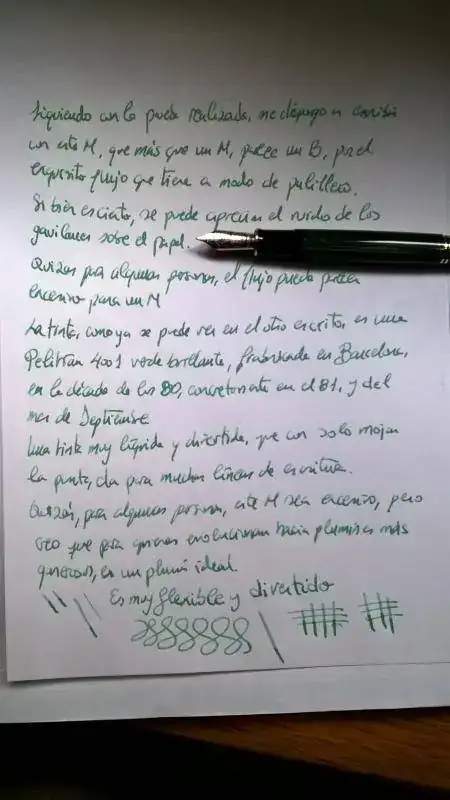 Siguiendo con la prueba realizada, me dispongo a escribir
con este M, que más que un M, parece un B, por el
exquisito flujo que tiene a modo de palillero.
Si bien es cierto, se puede apreciar el ruido de los
gavilanes sobre el papel.
Quizás para algunas personas, el flujo pueda parecer
excesivo para un M
La tinta, como ya se puede ver en el otro escrito, es una
Pelikan 4001 verde brillante, frabricada en Barcelona,
en la década de los 80, concretamente en el 81, y del
mes de Septiembre
Una tinta muy líquida y divertida, que con solo mojar
la punta, da para muchas líneas de escritura.
Quizás, para algunas personas, este M sea excesivo, pero
creo que para quienes evolucionan hacia plumines más
generosos, es un plumín ideal.
Es muy flexible y divertido